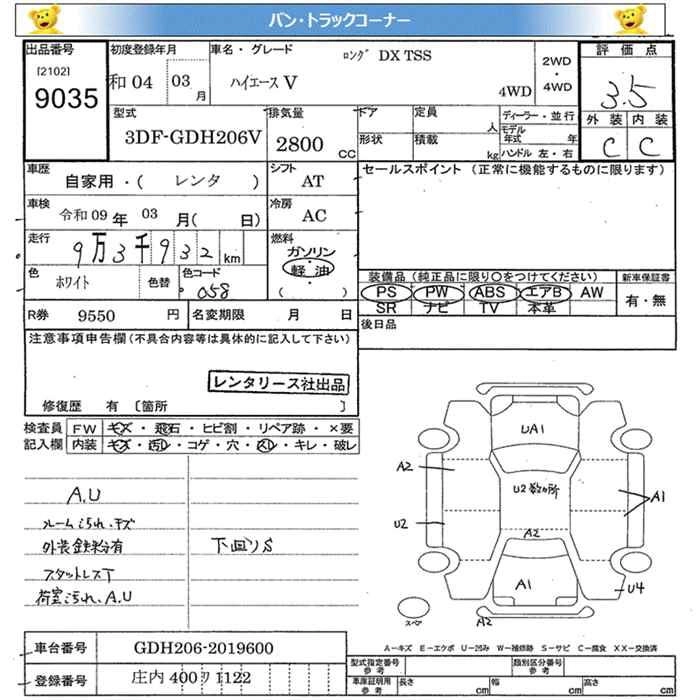 バン・トラックコーナー
出品番号
[2102]
9035
初度登録年月
和 04 03 月
車名・グレード
ロング DX TSS
ハイエース V
4WD
2WD
・
4WD
評価点
3.5
外装 内装
C C
型式
3DF-GDH206V
排気量
2800 cc
ドア
定員
人
形状
積載
kg
ディーラー・並行
モデル年式 年
ハンドル 左・右
車歴
自家用・( レンタ )
シフト
AT
車検
令和 09 年 03 月( 日)
冷房
AC
走行
9万3千932 km
燃料
ガソリン
・
軽油
( )
色
ホワイト
色替
色コード
058
R券 9550 円
名変期限 月 日
セールスポイント (正常に機能するものに限ります)
装備品(純正品に限り○をつけてください)
PS PW ABS エアB AW
SR ナビ TV 本革
新車保証書
有・無
後日品
注意事項申告欄(不具合内容等は具体的に記入して下さい)
レンタリース社出品
修復歴 有 [箇所 ]
検査員記入欄
FW キズ・飛石・ヒビ割・リペア跡・×要
内装 キズ・汚レ・コゲ・穴・スレ・キレ・破レ
A.U
ルーム汚れ、キズ
外装鉄粉有
下回りS
スタットレスT
荷室汚れ、A.U
UA1
A2
U2数ヶ所
A1
U2
A2
A1
U4
スペア
A2
車台番号 GDH206-2019600
登録番号 庄内 400 ワ 1122
A-キズ E-エクボ U-凹み W-補修跡 S-サビ C-腐食 XX-交換済
型式指定番号
参考
類別区分番号
参考
車庫証明用
参考
長さ cm 幅 cm 高さ cm